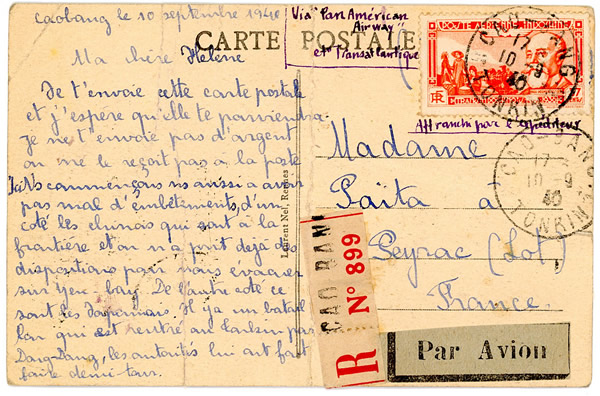 Caobang le 10 septembre 1940
Ma chère Helène
Je t'envoie cette carte postale
et j'espère qu'elle te parviendra
je ne t'envoie pas d'argent
on ne le reçoit pas à la poste
Ici Ns commençons ns aussi a avoir
pas mal d'embêtements, d'un
coté les chinois qui sont à la
frontière et on a parit dejà des
dispositions pour nous évacuer
sur Yen bay. De l'autre coté ce
sont les Japonais. Il y a un batail
lon qui est rentré au tonkin par
Dong-Dang, les autorités lui ont fait
faire demi-tour.
CARTE POSTALE
Laurent Nel, Rennes
Via "Pan Américan
Airway"
et Transatlantique
POSTE AERIENNE INDOCHINE
RF
CAO-BANG
17
10-9
40
TONKIN
Affranchi par l'expéditeur
CAO-BANG
17
10-9
40
TONKIN
Madame
Païta à
Peyrac (Lot)
France
R
CAO BANG
N° 899
Par Avion